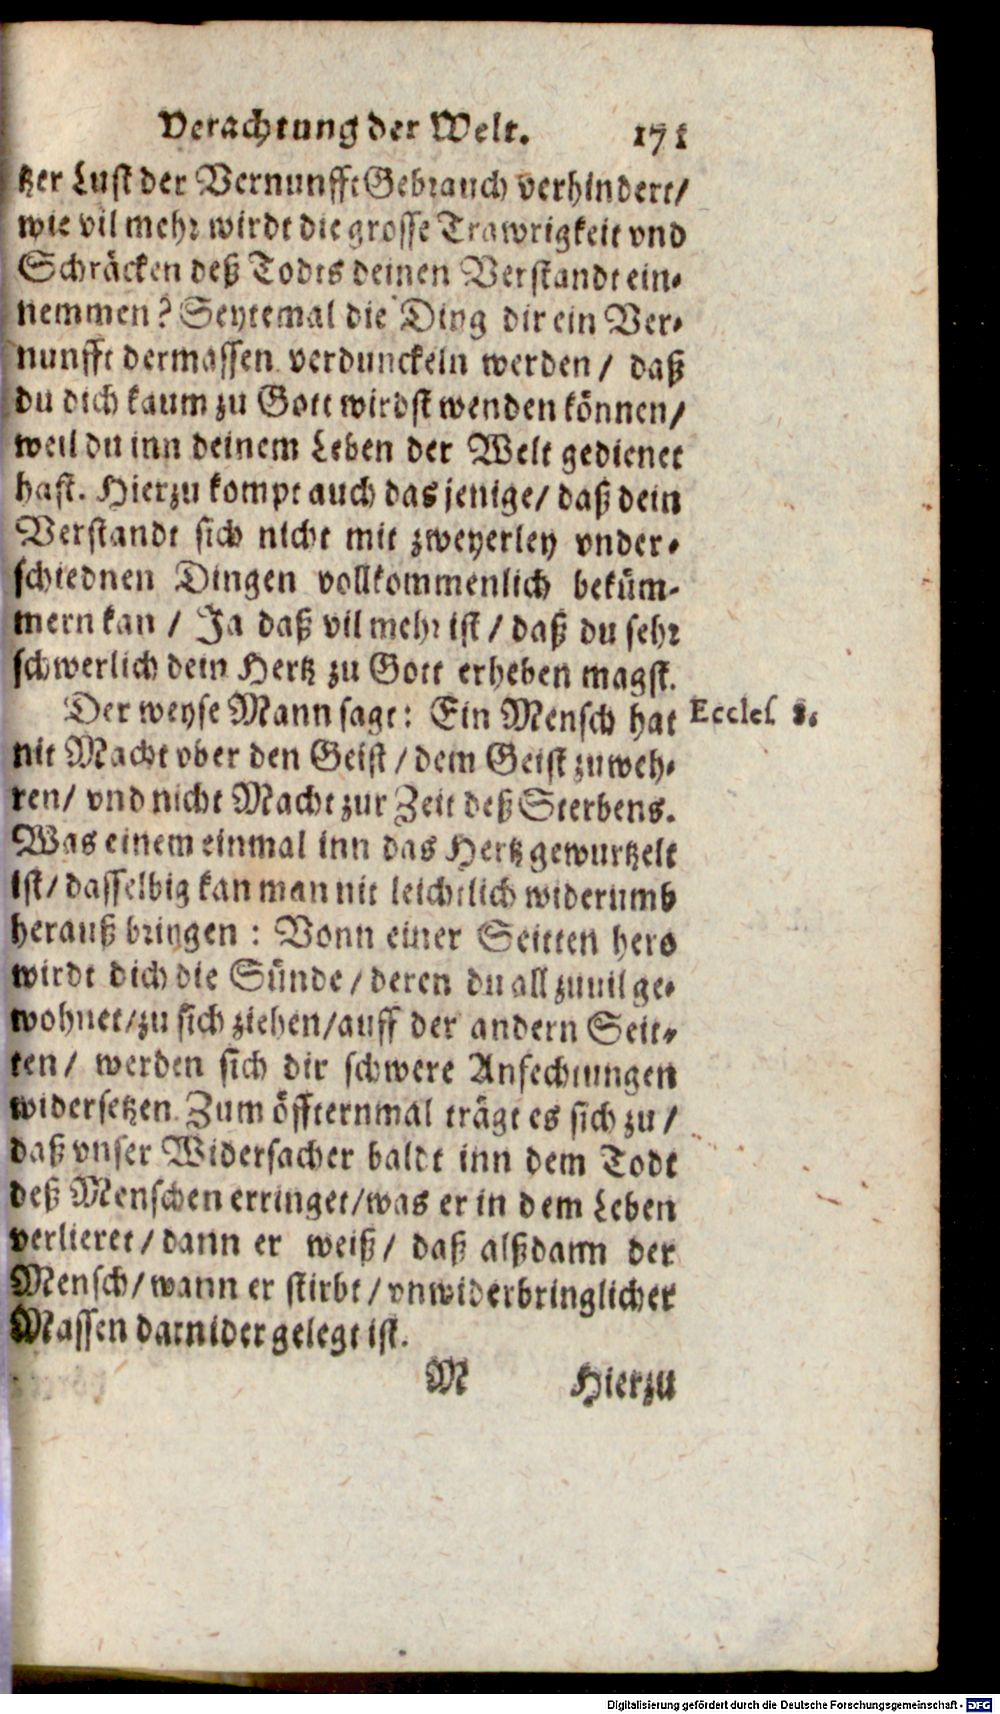 Verachtung der Welt. 171
tzer Lust der Vernunfft Gebrauch verhindert/
wie vil mehr wirdt die grosse Trawrigkeit vnd
Schräcken deß Todts deinen Verstandt ein-
nemmen? Seytemal die Ding dir ein Ver-
nunfft dermassen verdunckeln werden / daß
du dich kaum zu Gott wirdst wenden können/
weil du inn deinem Leben der Welt gedienet
hast. Hierzu kompt auch das jenige/ daß dein
Verstandt sich nicht mit zweyerley vnder-
schiednen Dingen vollkommenlich beküm-
mern kan / Ja daß vil mehr ist / daß du sehr
schwerlich dein Hertz zu Gott erheben magst.
Der weyse Mann sagt: Ein Mensch hat Eccles 8.
nit Macht vber den Geist / dem Geist zuweh-
ren/ vnd nicht Macht zur Zeit deß Sterbens.
Was einem einmal inn das Hertz gewurtzelt
ist/ dasselbig kan man nit leichtlich widerumb
herauß bringen : Vonn einer Seitten hero
wirdt dich die Sünde / deren du all zuuil ge-
wohnet/zu sich ziehen/auff der andern Seit-
ten/ werden sich dir schwere Anfechtungen
widersetzen. Zum öffternmal trägt es sich zu /
daß vnser Widersacher baldt inn dem Todt
deß Menschen erringet/was er in dem Leben
verlieret / dann er weiß / daß alßdann der
Mensch/ wann er stirbt / vnwiderbringlicher
Massen darnider gelegt ist.
M Hierzu
Digitalisierung gefördert durch die Deutsche Forschungsgemeinschaft - DFG